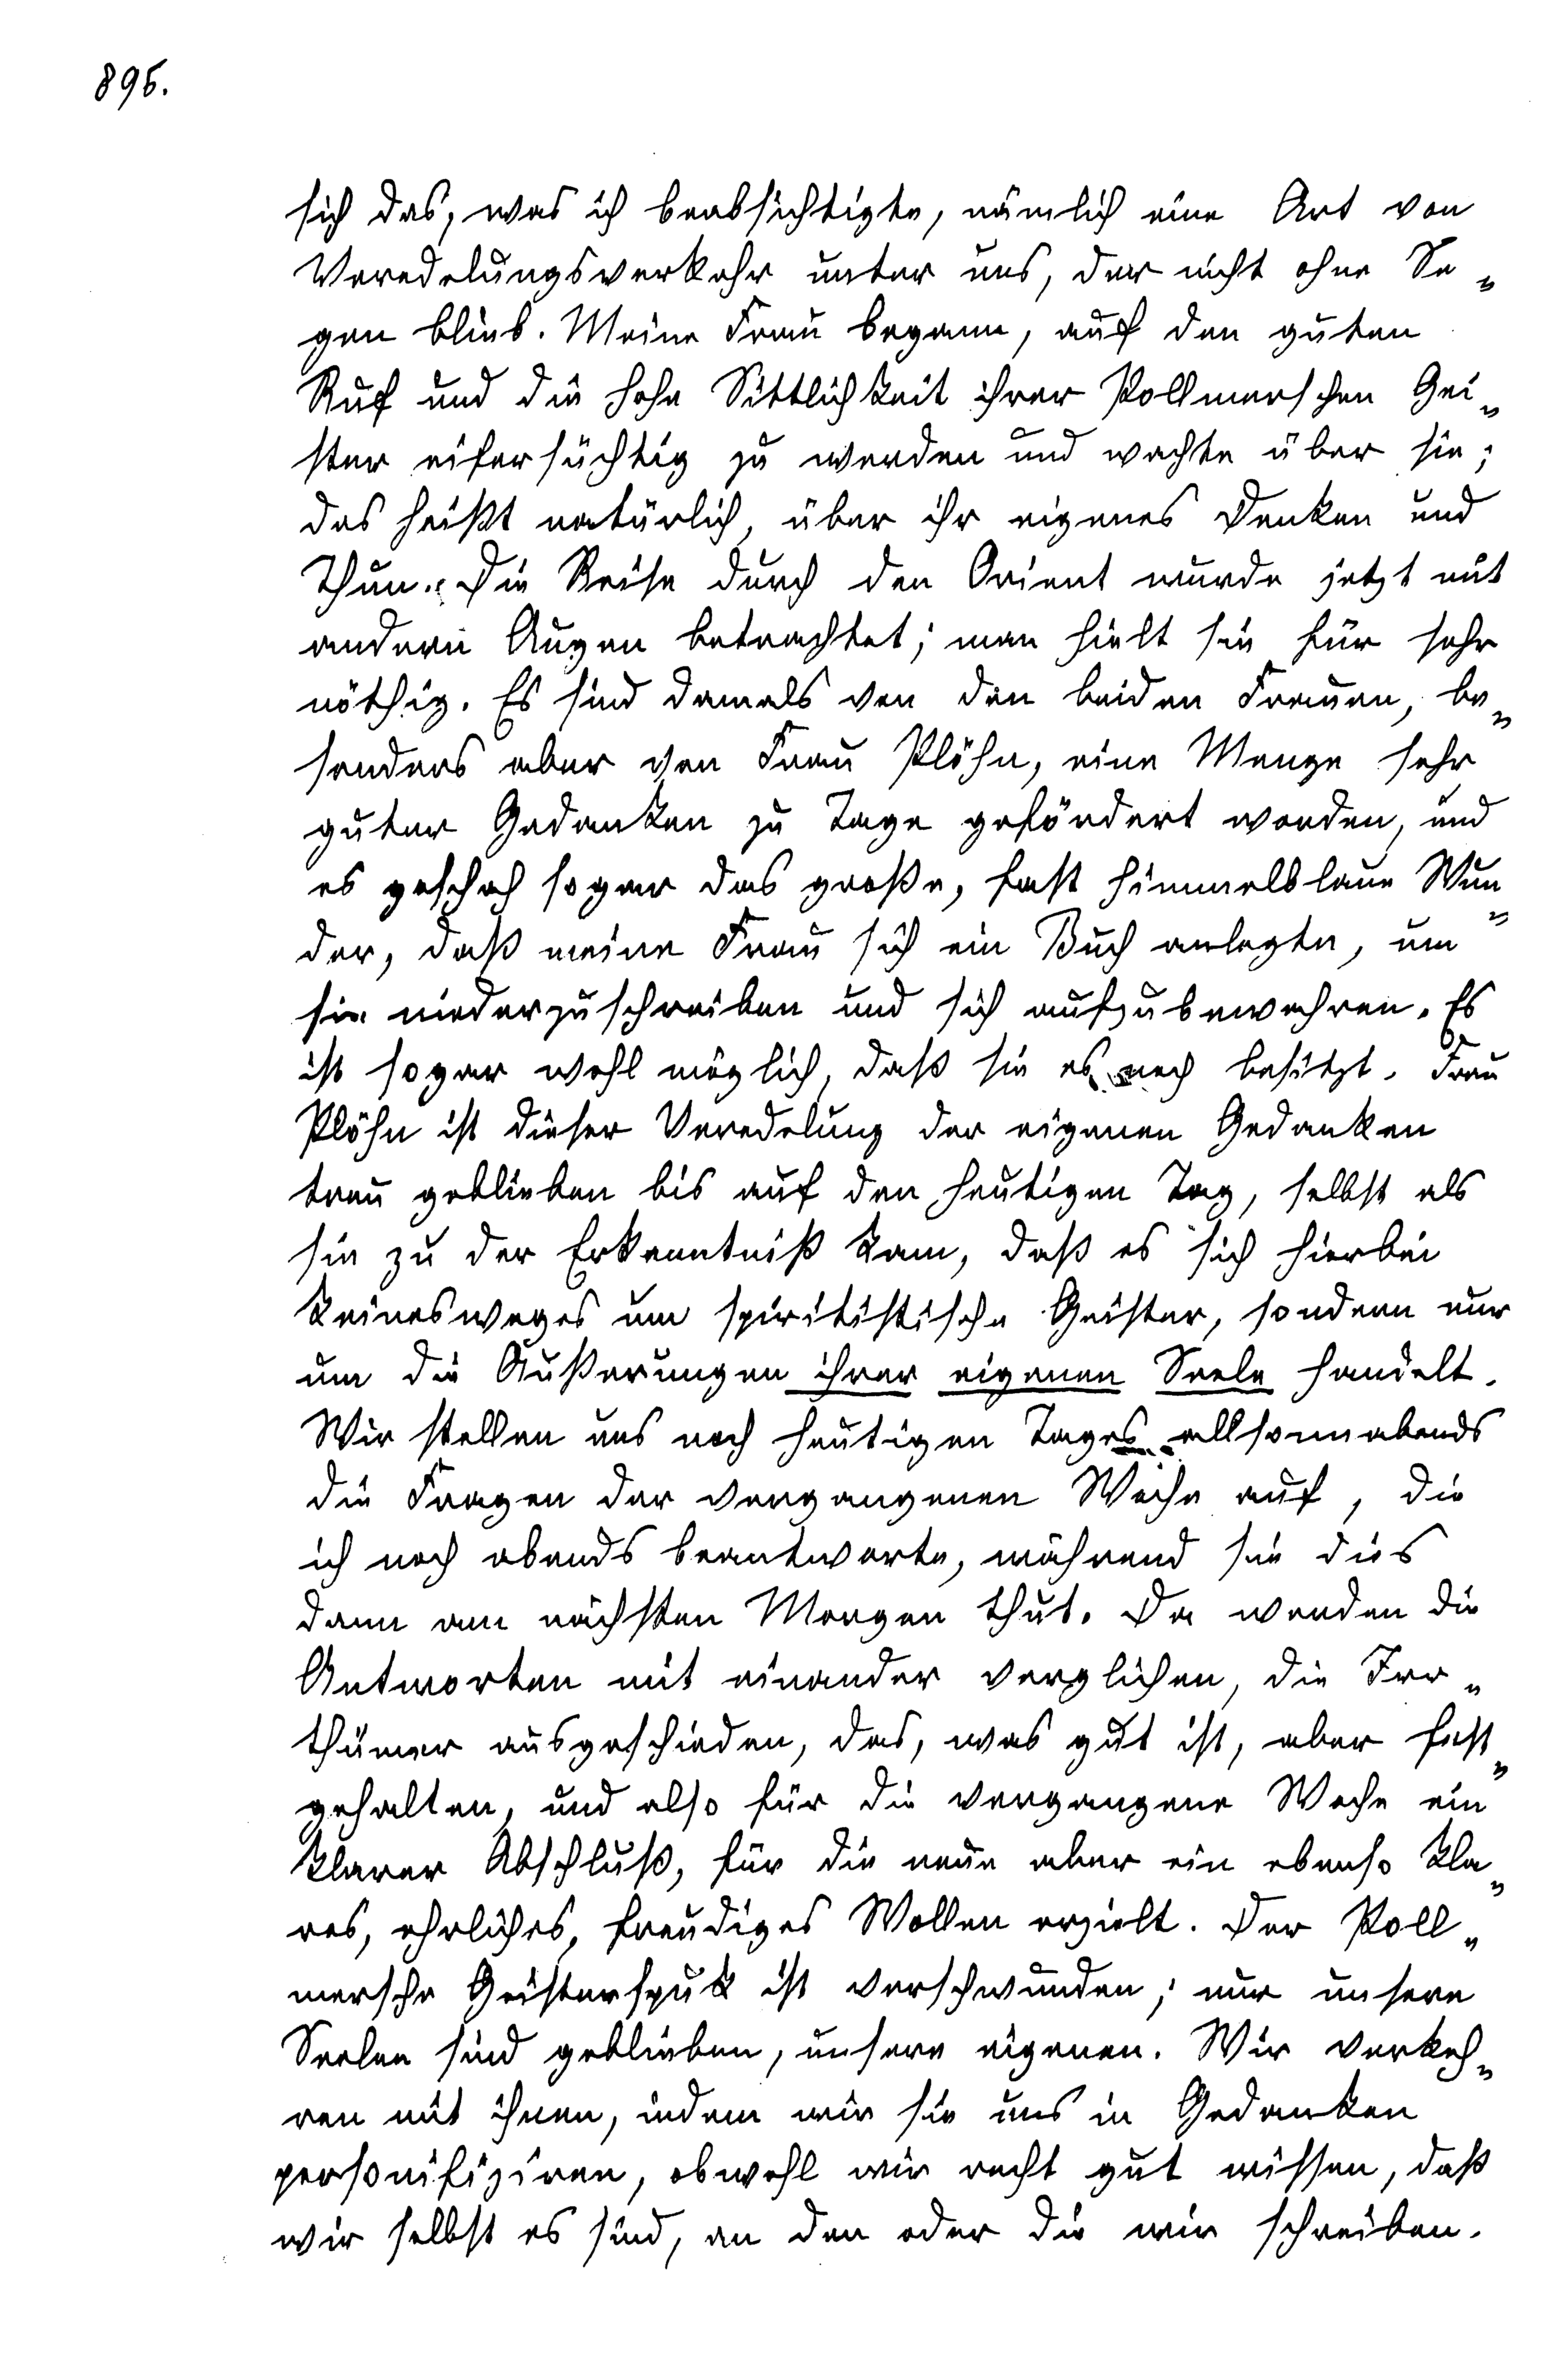 896.
sich das, was ich beabsichtigte, nämlich eine Art von
Veredelungsverkehr unter uns, der nicht ohne Se„
gen blieb. Meine Frau begann, auf den guten
Ruf und die hohe Sittlichkeit ihrer Pollmerschen Gei„
ster eifersüchtig zu werden und wachte über sie;
das heißt natürlich, über ihr eigenes Denken und
Thun. Die Reise durch den Orient wurde jetzt mit
andern Augen betrachtet; man hielt sie für sehr
nöthig. Es sind damals von den beiden Frauen, be„
sonders aber von Frau Plöhn, eine Menge sehr
guter Gedanken zu Tage gefördert worden, und
es geschah sogar das große, fast himmelblaue Wun„
der, daß meine Frau sich ein Buch anlegte, um
sie niederzuschreiben und sich aufzubewahren. Es
ist sogar wohl möglich, daß sie es noch besitzt. Frau
Plöhn ist dieser Veredelung der eigenen Gedanken
treu geblieben bis auf den heutigen Tag, selbst als
sie zu der Erkenntniß kam, daß es sich hierbei
keinesweges um spiritistische Geister, sondern nur
um die Äußerungen ihrer eigenen Seele handelt.
Wir stellen uns noch heutigen Tages allsonnabends
die Fragen der vergangenen Woche auf, die
ich noch abends beantworte, während sie dies
dann am nächsten Morgen thut. Da werden die
Antworten mit einander verglichen, die Irr„
thümer ausgeschieden, das, was gut ist, aber fest„
gehalten, und also für die vergangene Woche ein
klarer Abschluß, für die neue aber ein ebenso kla„
res, ehrliches, freudiges Wollen erzielt. Der Poll„
mersche Geisterspuk ist verschwunden; nur unsere
Seelen sind geblieben, unsere eigenen. Wir verkeh„
ren mit ihnen, indem wir sie uns in Gedanken
personifiziren, obwohl wir recht gut wissen, daß
wir selbst es sind, an den oder die wir schreiben.